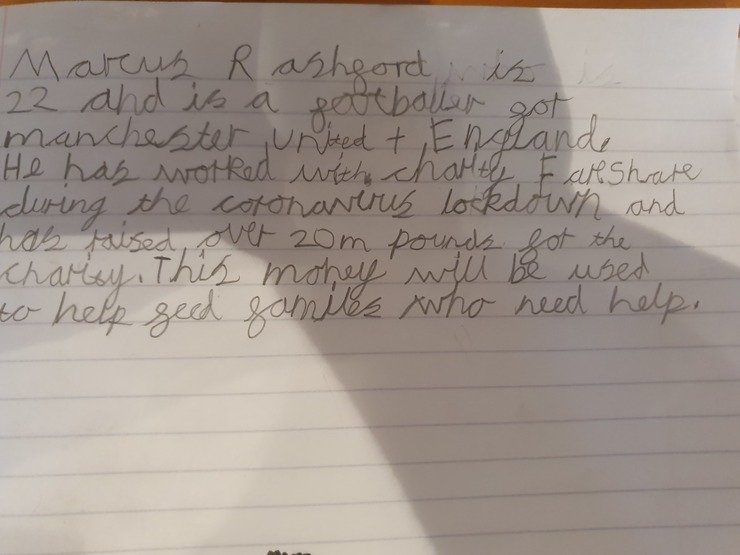 Marcus Rashford is
22 and is a footballer for
manchester United + England.
He has worked with charity FareShare
during the coronavirus lockdown and
has raised over 20m pounds for the
charity. This money will be used
to help feed familes who need help.